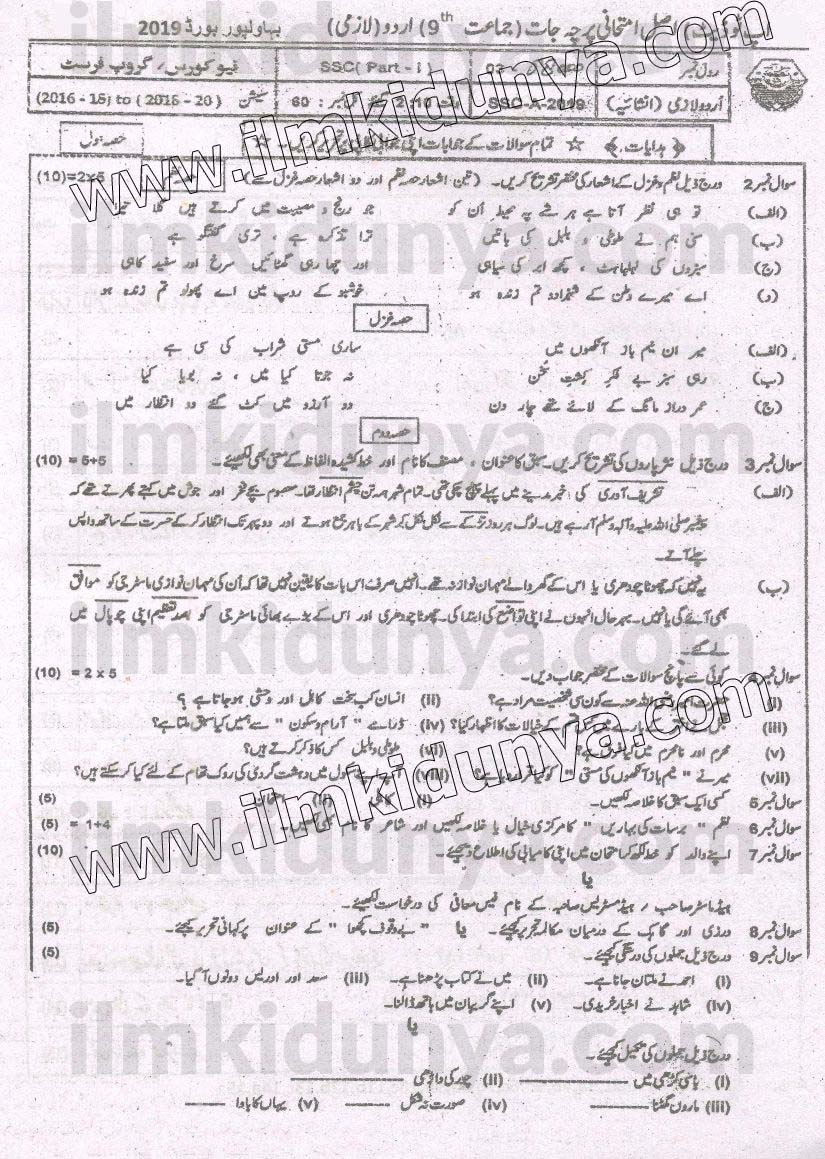 اصلی امتحانی پرچہ جات (جماعت 9th) اردو (لازمی) بہاولپور بورڈ 2019
رول نمبر SSC( Part - I ) نیو کورس، گروپ فرسٹ
اردو لازمی (انشائیہ) SSC-A-2019 وقت 2:10 نمبر : 60 سیشن (2016 - 18) to ( 2018 - 20)
﴿ ہدایات ﴾ ☆ تمام سوالات کے جوابات اپنی جوابی حصہ اول
سوال نمبر 2 درج ذیل نظم و غزل کے اشعار کی مختصر تشریح کریں۔ (تین اشعار حصہ نظم اور دو اشعار حصہ غزل سے) (10)=2x5
(الف) تو ہی نظر آتا ہے ہر شے پہ محیط اُن کو جو رنج و مصیبت میں کرتے ہیں گلا تیرا
(ب) سنی ہم نے طوطی و بلبل کی باتیں ترا تذکرہ ہے ، تری گفتگو ہے
(ج) سبزوں کی لہلہاہٹ ، کچھ ابر کی سیاہی اور چھا رہی گھٹائیں سرخ اور سفید کاہی
(د) اے میرے وطن کے شہزادو تم زندہ ہو خوشبو کے روپ میں اے پھولو تم زندہ ہو
حصہ غزل
(الف) میر ان نیم باز آنکھوں میں ساری مستی شراب کی سی ہے
(ب) رہی سبز بے فکر کشتِ سخن نہ جوتا کیا میں ، نہ بویا کیا
(ج) عمر دراز مانگ کے لائے تھے چار دن دو آرزو میں کٹ گئے دو انتظار میں
حصہ دوم
سوال نمبر 3 درج ذیل نثر پاروں کی تشریح کریں۔ سبق کا عنوان ، مصنف کا نام اور خط کشیدہ الفاظ کے معنی بھی لکھیئے۔ (10) = 5+5
(الف) تشریف آوری کی خبر مدینے میں پہلے پہنچ چکی تھی۔ تمام شہر ہمہ تن چشم انتظار تھا۔ معصوم بچے فخر اور جوش میں کہتے پھرتے تھے کہ
پیغمبر صلی اللہ علیہ و آلہ وسلم آ رہے ہیں۔ لوگ ہر روز تڑکے سے نکل نکل کر شہر کے باہر جمع ہوتے اور دوپہر تک انتظار کر کے حسرت کے ساتھ واپس
چلے آتے۔
(ب) یہ نہیں کہ چھوٹا چودھری یا اس کے گھر والے مہمان نواز نہ تھے۔ انہیں صرف اس بات کا یقین نہیں تھا کہ اُن کی مہمان نوازی ماسٹر جی کو موافق
بھی آئے گی یا نہیں۔ بہر حال انہوں نے اپنی تواضع کی ابتدا کی۔ چھوٹا چودھری اور اس کے بڑے بھائی ماسٹر جی کو بصد تعظیم اپنی چوپال میں
لے گئے۔
سوال نمبر 4 کوئی سے پانچ سوالات کے مختصر جواب دیں۔ (10) = 2 x 5
(i) اللہ عنہ سے کون سی شخصیت مراد ہے؟ (ii) انسان کب سخت کاہل اور وحشی ہو جاتا ہے ؟
(iii) کے خیالات کا اظہار کیا؟ (iv) ڈرامے " آرام و سکون " سے ہمیں کیا سبق ملتا ہے؟
(v) محرم اور نامحرم میں کیا (vi) طوطی و بلبل کس کا ذکر کرتے ہیں؟
(vii) میر نے " نیم باز آنکھوں کی مستی " کو کیا قرار دیا ہے؟ (viii) آپ اپنے سکول میں دہشت گردی کی روک تھام کے لئے کیا کر سکتے ہیں؟
سوال نمبر 5 کسی ایک سبق کا خلاصہ لکھیں۔ (i) کاہلی (ii) امتحان (5)
سوال نمبر 6 نظم " برسات کی بہاریں " کا مرکزی خیال یا خلاصہ لکھیں اور شاعر کا نام بھی لکھیں۔ (5) = 1+4
سوال نمبر 7 اپنے والد کو خط لکھ کر امتحان میں اپنی کامیابی کی اطلاع دیجیئے۔ (10)
یا
ہیڈ ماسٹر صاحب / ہیڈ مسٹریس صاحبہ کے نام فیس معافی کی درخواست لکھیئے۔
سوال نمبر 8 درزی اور گاہک کے درمیان مکالمہ تحریر کیجیئے۔ یا " بے وقوف کچھوا " کے عنوان پر کہانی تحریر کیجیئے۔ (5)
سوال نمبر 9 درج ذیل جملوں کی درستگی کیجیئے۔ (5)
(i) احمد نے ملتان جانا ہے۔ (ii) میں نے کتاب پڑھنا ہے۔ (iii) سعد اور ادریس دونوں آ گیا۔
(iv) شاہد نے اخبار خریدی۔ (v) اپنے گریبان میں ہاتھ ڈالنا۔
یا
درج ذیل جملوں کی تکمیل کیجیئے۔
(i) باسی کڑھی میں ــــــــــــ (ii) چور کی داڑھی ــــــــــــ
(iii) ماروں گھٹنا ــــــــــــ (iv) صورت نہ شکل ــــــــــــ (v) یہاں کا باوا ــــــــــــ
www.ilmkidunya.com
www.ilmkidunya.com
ilmkidunya.com
ilmkidunya.com
ilmkidunya.com
ilmkidunya.com
ilmkidunya.com